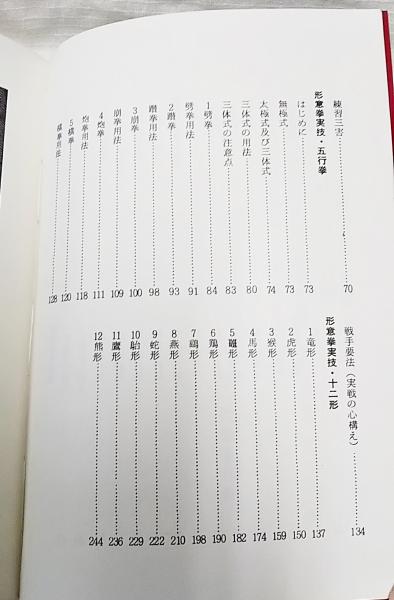 練習三害 70
形意拳実技・五行拳
はじめに 73
無極式 73
太極式及び三体式 74
三体式の用法 80
三体式の注意点 83
1 劈拳 84
劈拳用法 91
2 躦拳 93
躦拳用法 98
3 崩拳 100
崩拳用法 109
4 炮拳 111
炮拳用法 118
5 横拳 120
横拳用法 128
戦手要法（実戦の心構え） 134
形意拳実技・十二形
1 竜形 137
2 虎形 150
3 猴形 159
4 馬形 174
5 形 182
6 鶏形 190
7 鷂形 198
8 燕形 210
9 蛇形 222
10 形 229
11 鷹形 236
12 熊形 244